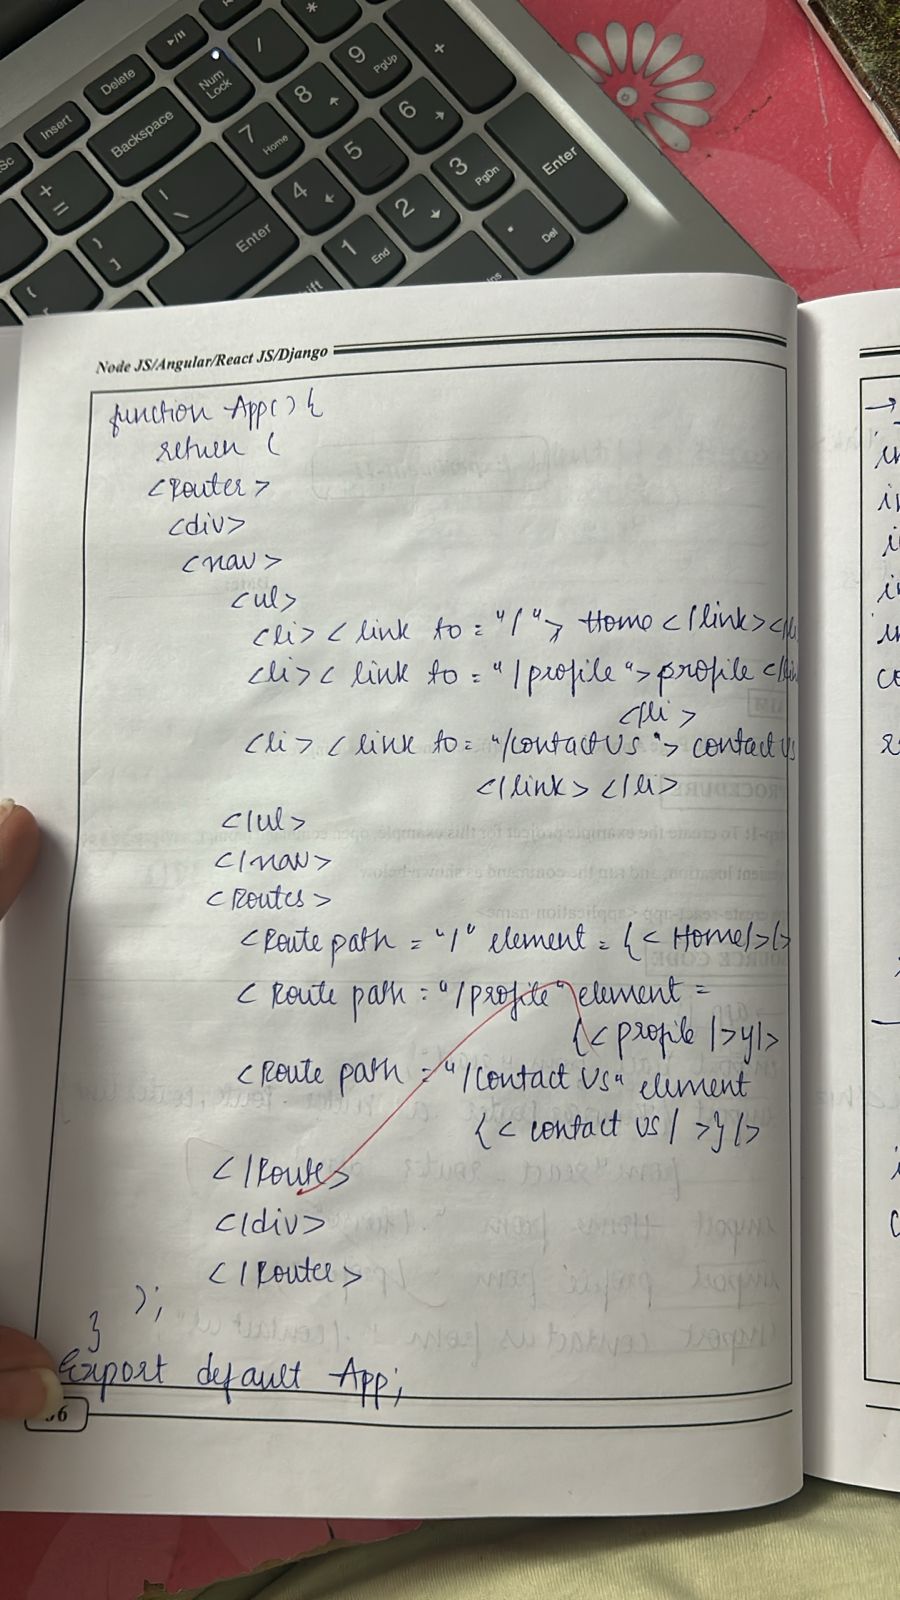 *
/
+
Delete
Num Lock
9 PgUp
Insert
Backspace
8
6
7 Home
5
3 PgDn
Enter
+ =
|
\
4
2
Enter
1 End
. Del
}
]
{
Node JS/Angular/React JS/Django
function App() {
return (
<Router>
<div>
<nav>
<ul>
<li> < link to = "/"> Home </link></li
<li> < link to = "/profile "> profile </link
</li >
<li> < link to = "/contact Us "> contact Us
</link> </li>
</ul>
</nav>
<Routes>
<Route path = "/" element = {< Home/>}/>
< Route path = "/profile" element =
{< profile />}/>
<Route path = "/contact Us" element
{< contact Us / >} />
</Route>
</div>
</Router>
);
}
Export default App;